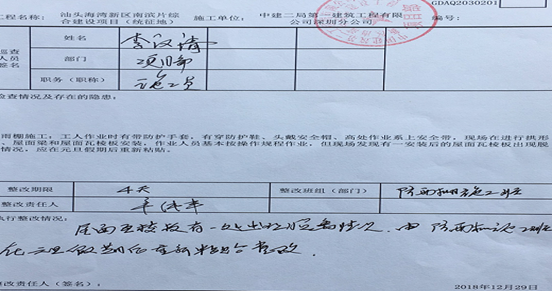 GDAQ2030201
工程名称： 汕头海湾新区南滨片综合建设项目（统征地） 施工单位： 中建二局第一建筑工程有限公司深圳分公司 编号：
姓名 李汉清
部门 项目部
职务（职称） 施工员
检查情况及存在的隐患：
雨棚施工，工人作业时有带防护手套，有穿防护鞋、头戴安全帽、高处作业系上安全带，现场在进行拱形
、屋面梁和屋面瓦棱板安装，作业人员基本按操作规程作业，但现场发现有一安装后的屋面瓦棱板出现脱
情况，应在元旦假期后重新粘贴。
整改期限 4天 整改班组（部门）
整改责任人
执行整改情况：
屋面瓦棱板有一处出现脱落情况，由
在元旦假期后重新粘贴整改.
整改责任人（签名）：
2018年12月29日